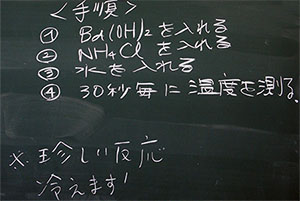 <手順>
① Ba(OH)₂を入れる
② NH₄Clを入れる
③ 水を入れる
④ 30秒毎に温度を測る
※珍しい反応
冷えます!